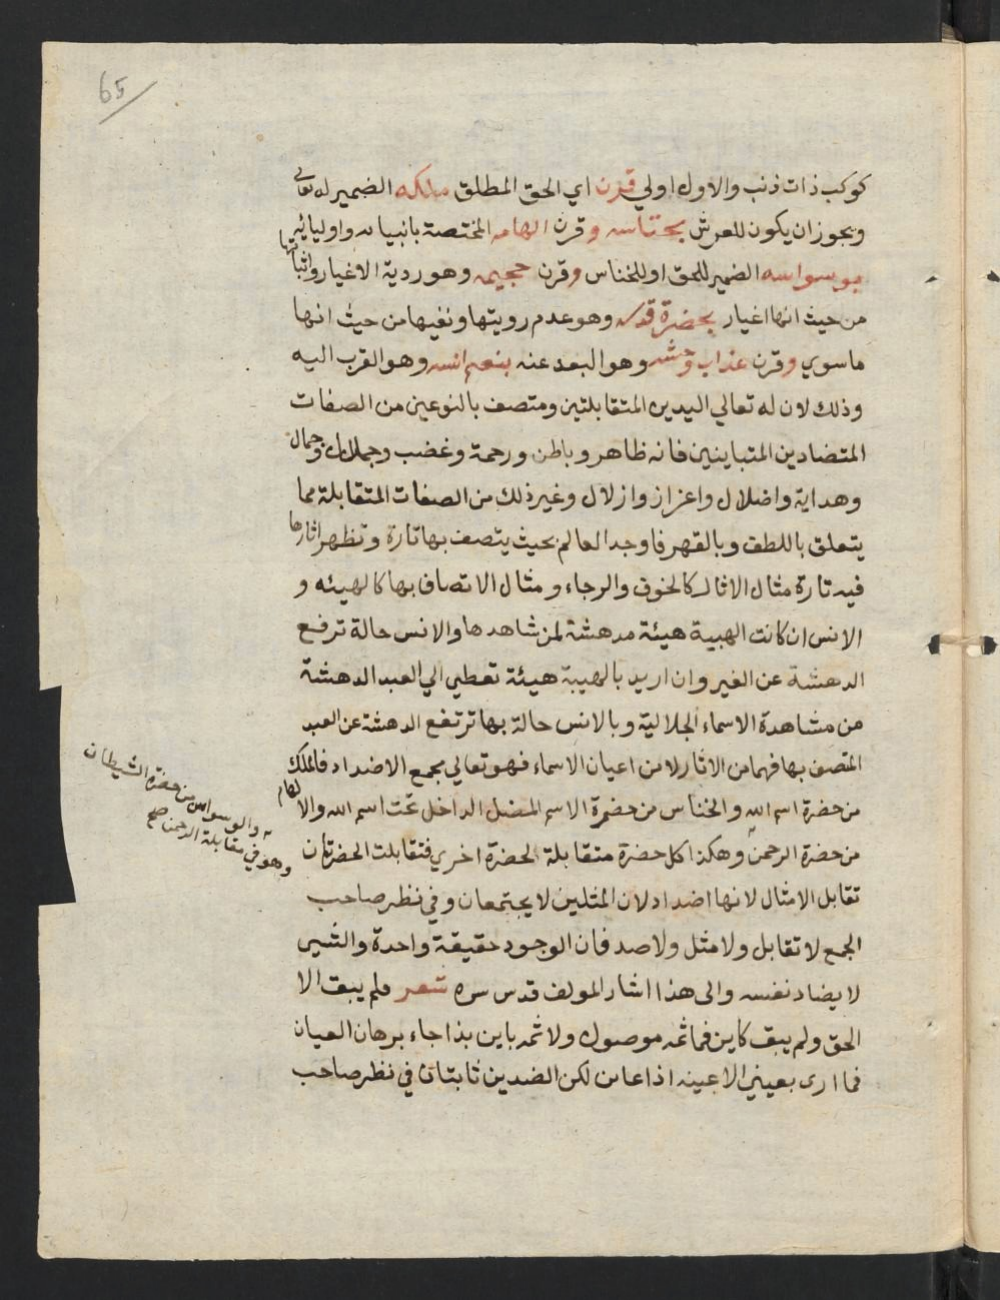 65
كوكب ذات ذنب والاول اولي قرن اي الحق المطلق ملكه الضمير له تعالى
ويجوز ان يكون للعرش بخناسه وقرن الهامه المختصة بانبيائه واوليائه
بوسواسه الضمير للحق او للخناس وقرن حجيمه وهو روية الاغيار واثباتها
من حيث انها اغيار بحضرة قدسه وهو عدم رويتها ونفيها من حيث انها
ماسوي وقرن عذاب وحشته وهو البعد عنه بنعيم انسه وهو القرب اليه
وذلك لان له تعالي اليدين المتقابلتين ومتصف بالنوعين من الصفات
المتضادين المتباينين فانه ظاهر وباطن ورحمة وغضب وجلال وجمال
وهداية واضلال واعزاز واذلال وغير ذلك من الصفات المتقابلة مما
يتعلق باللطف وبالقهر فاوجد العالم بحيث يتصف بها تارة وتظهر اثارها
فيه تارة مثال الاثار كالخوف والرجاء ومثال الاتصاف بها كالهيئه و
الانس ان كانت الهيبة هيئة مدهشة لمن شاهدها والانس حالة ترفع
الدهشة عن الغير وان اريد بالهيبة هيئة تعطي الي العبد الدهشة
من مشاهدة الاسماء الجلالية وبالانس حالة بها ترتفع الدهشة عن العبد
المتصف بها فهما من الاثار لا من اعيان الاسماء فهو تعالي مجمع الاضداد فالملك
من حضرة اسم الله والخناس من حضرة الاسم المضل الداخل تحت اسم الله والالهام
من حضرة الرحمن وهكذا كل حضرة متقابلة لحضرة اخري فتقابلت الحضرتان
تقابل الامثال لانها اضداد لان المثلين لا يجتمعان وفي نظر صاحب
الجمع لا تقابل ولا مثل ولا ضد فان الوجود حقيقة واحدة والشيي
لا يضاد نفسه والى هذا اشار المولف قدس سره شعر فلم يبق الا
الحق ولم يبق كاين فما ثمه موصول ولا ثمه باين بذا جاء برهان العيان
فما ارى بعيني الا عينه اذا عاين لكن الضدين ثابتان في نظر صاحب
والوسواس من حضرة الشيطان
وهو في مقابلة الرحمن صح